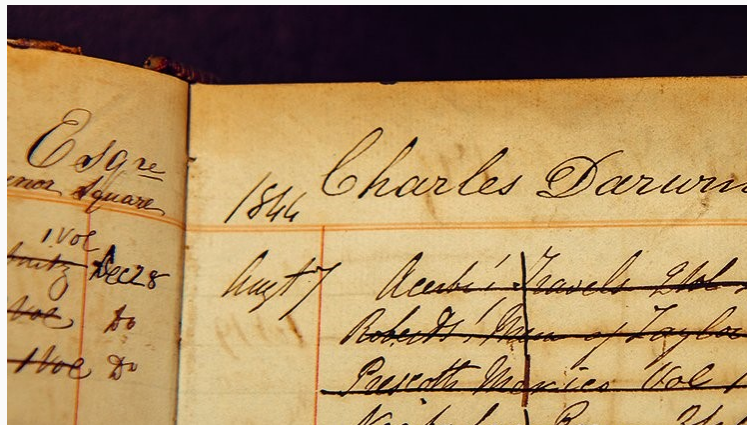 Esqre
Square
1 Vol
Dec 28
Vol Do
1 Vol Do
Charles Darwin
1844
Augt 7 Acerbi's Travels 2 Vol
Roberts' Mem of Taylor
Prescott's Mexico Vol 1